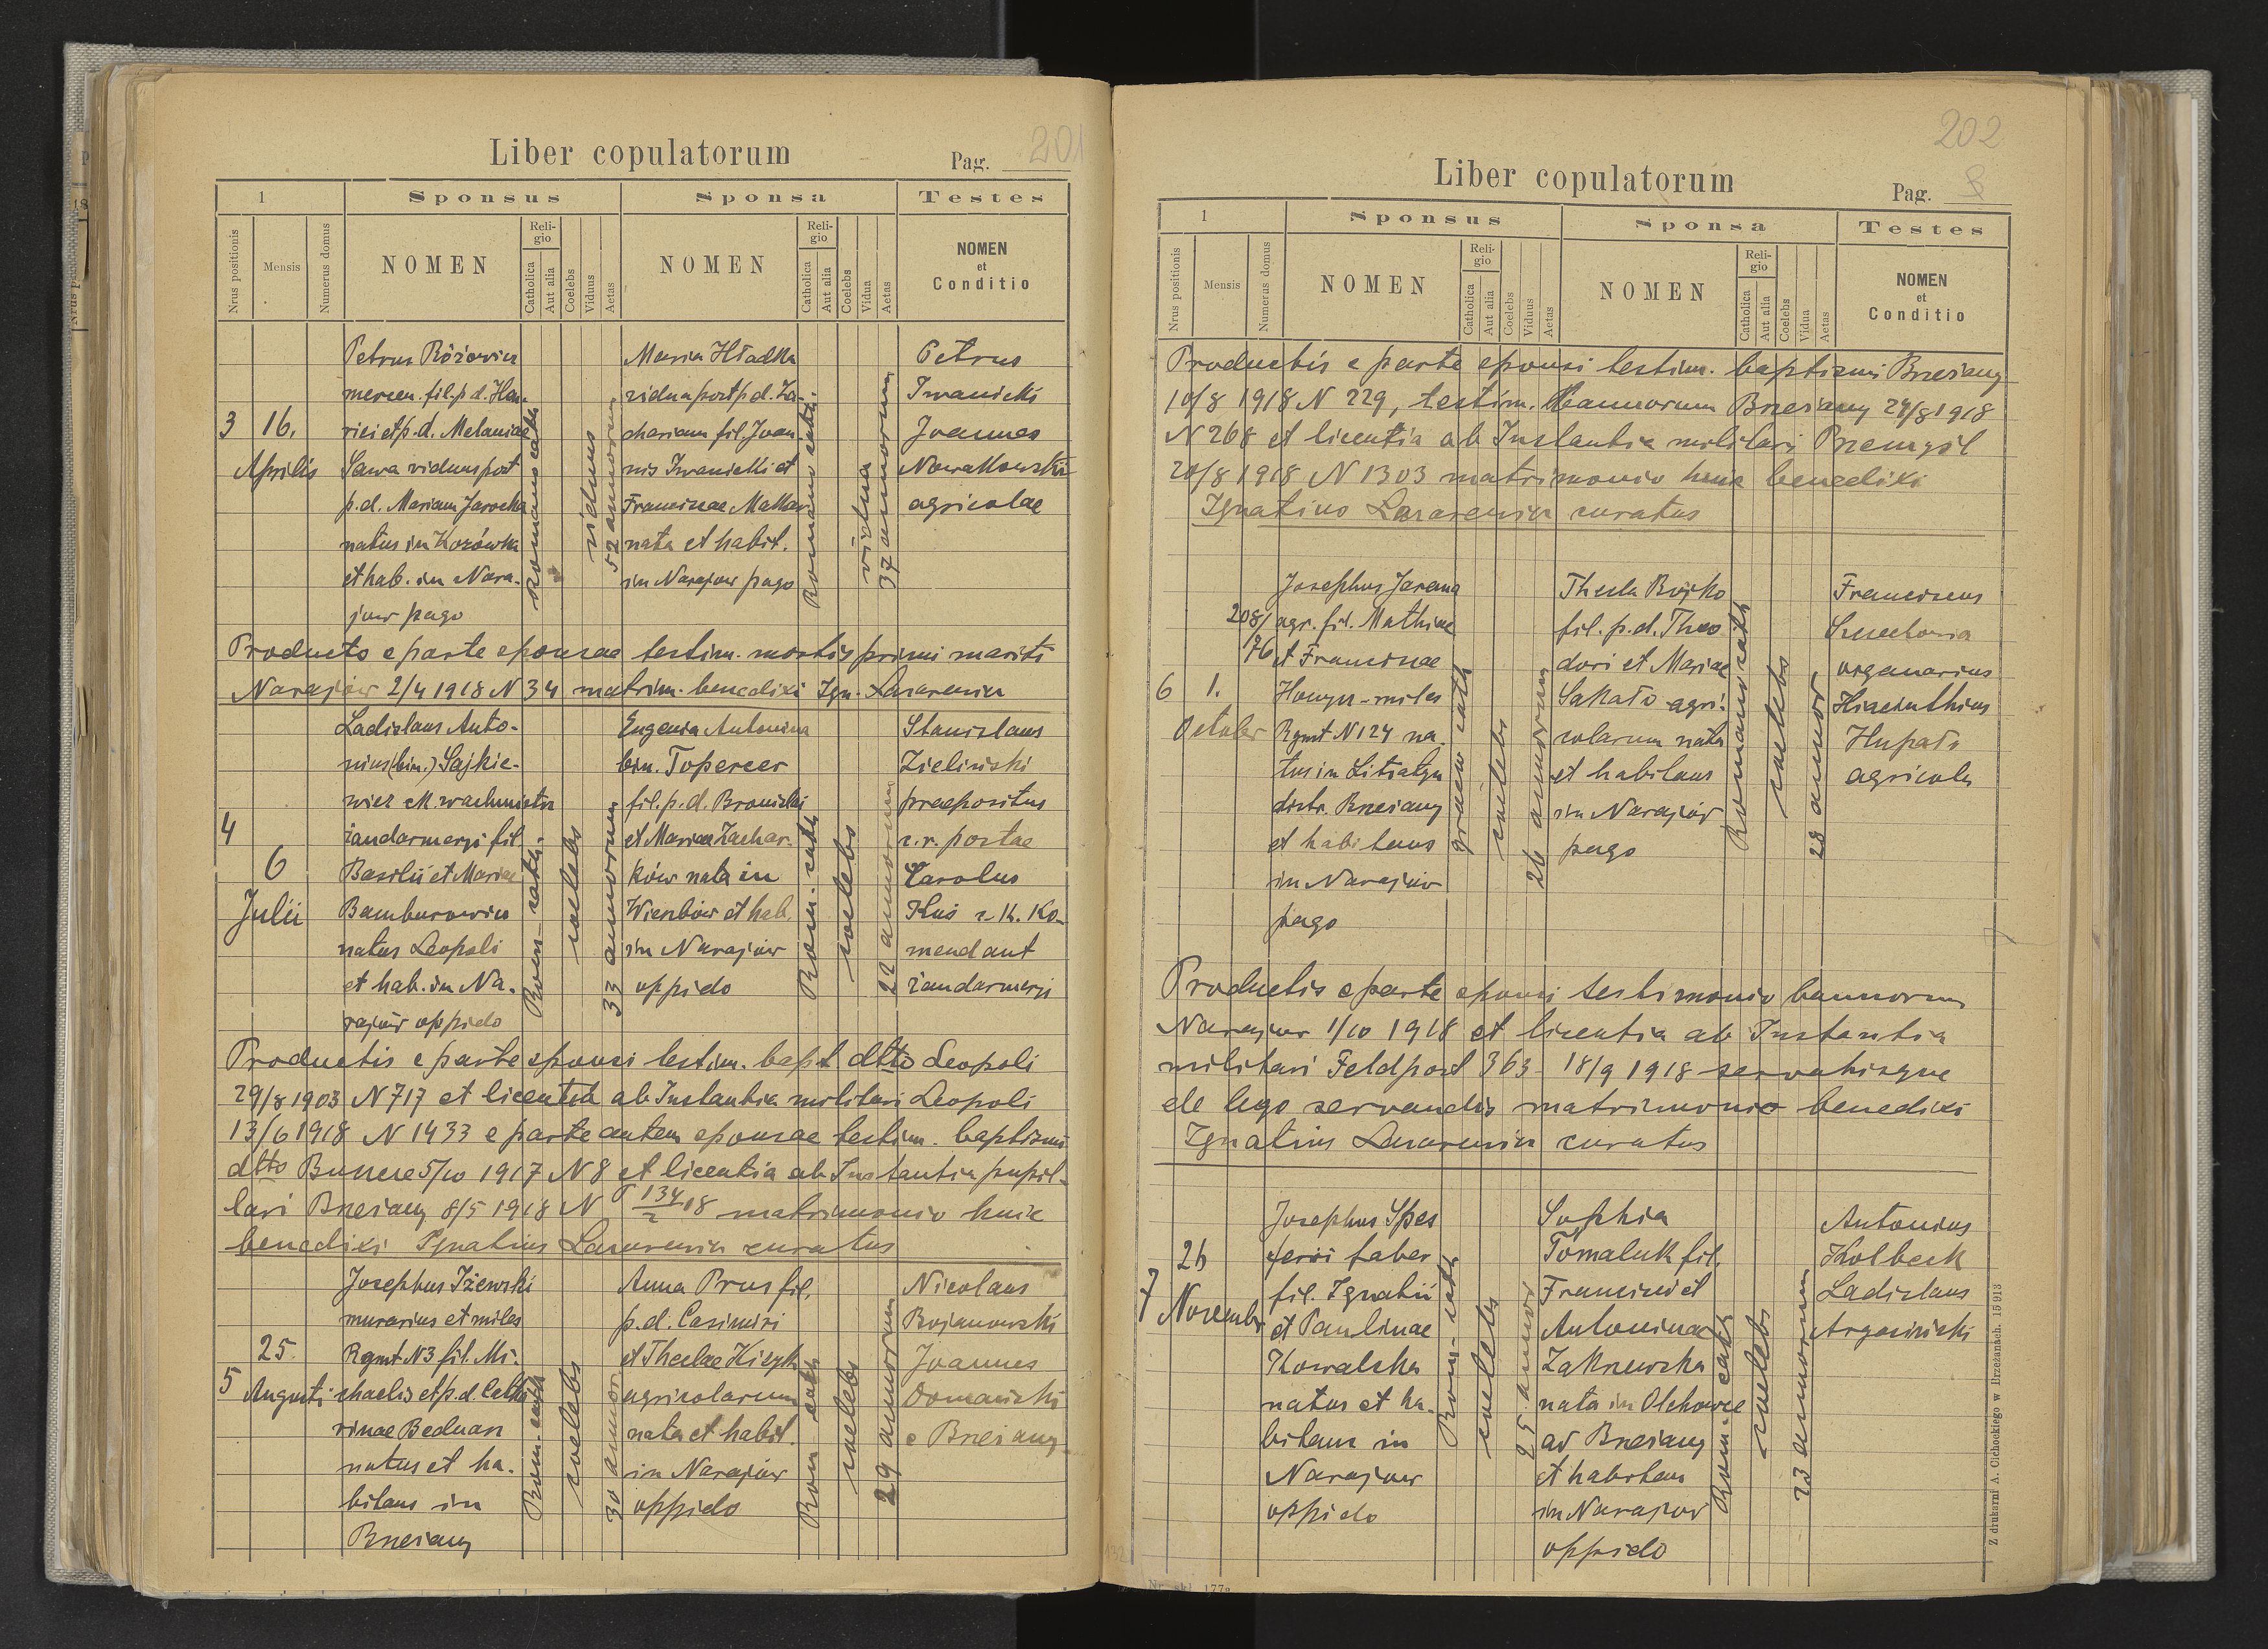 201
Liber copulatorum
Pag.
1
Sponsus
Sponsa
Testes
Nrus positionis
Mensis
Numerus domus
NOMEN
Religio
Catholica
Aut alia
Coelebs
Viduus
Aetas
NOMEN
Religio
Catholica
Aut alia
Coelebs
Vidua
Aetas
NOMEN
et
Conditio
3
16.
Aprilis
Petrus Różowicz
mercen. fil. p. d. Hen-
rici et p. d. Melaniae
Sawa viduus post
p. d. Mariam Jarocka
natus in Kozówka
et hab. in Nara-
jow pago
Romano cath.
viduus
52 annorum
Maria Hładka
vidua post p. d. Za-
chariam fil. Joan-
nis Iwanicki et
Franciscae Makar
nata et habit.
in Narajow pago
Romano cath.
vidua
37 annorum
Petrus
Iwanicki
Joannes
Nowakowski
agricolae
Producto e parte sponsae testim. mortis primi mariti
Narajów 2/4 1918 N 34 matrim. benedixi Ign. Lazarewicz
4
6
Julii
Ladislaus Anto-
nius (bin.) Sajkie-
wicz
żandarmeryi fil.
Basilii et Mariae
Bamburowicz
natus Leopoli
et hab. in Na-
rajów oppido
Rom. cath.
coelebs
33 annorum
Eugenia Antonina
bin. Toperzer
fil. p. d. Bronislai
et Mariae Zachar-
ków nata in
Wierzbów et hab.
in Narajów
oppido
Rom. cath.
coelebs
22 annorum
Stanislaus
Zieliński
praepositus
c. r. postae
Carolus
Kuś c. k. Ko-
mendant
żandarmeryi
Productis e parte sponsi testim. bapt. dtto Leopoli
29/8 1903 N 717 et licentia ab Instantia militari Leopoli
13/6 1918 N 1433 e parte autem sponsae testim. baptismi
dtto 5/10 1917 N 8 et licentia ab Instantia pupil-
lari Brzeżany 8/5 1918 N P 134/2 18 matrimonio huic
benedixi Ignatius Lazarewicz curatus
5
25.
Augusti
Josephus Iżewski
murarius et miles
Rgmt N 3 fil. Mi-
chaelis et p. d. Catha-
rinae Bednarz
natus et ha-
bitans in
Brzeżany
Rom. cath.
coelebs
30 annor.
Anna Prus fil.
p. d. Casimiri
et Theclae
agricolarum
nata et habit.
in Narajów
oppido
Rom. cath.
coelebs
29 annorum
Nicolaus
Bojanowski
Joannes
Domański
e Brzeżany
202
Liber copulatorum
Pag. 8
1
Sponsus
Sponsa
Testes
Nrus positionis
Mensis
Numerus domus
NOMEN
Religio
Catholica
Aut alia
Coelebs
Viduus
Aetas
NOMEN
Religio
Catholica
Aut alia
Coelebs
Vidua
Aetas
NOMEN
et
Conditio
Productis e parte sponsi testim. baptismi Brzeżany
10/8 1918 N 229, testim. bannorum Brzeżany 29/8 1918
N 268 et licentia ab Instantia militari Przemyśl
20/8 1918 N 1303 matrimonio huic benedixi
Ignatius Lazarewicz curatus
6
1.
October
208/
76
Josephus Jarema
agr. fil. Mathiae
et Franciscae
Honyn - miles
Rgmt N 124 na-
tus in Litiatyn
distr. Brzeżany
et habitans
in Narajów
pago
graeco cath.
coelebs
26 annorum
Thecla Bojko
fil. p. d. Theo
dori et Mariae
Sakało agri-
colarum nata
et habitans
in Narajów
pago
Romano cath.
coelebs
28 annor.
Franciscus
organarius
Hiacinthus
Hupało
agricola
Productis e parte sponsi testimonio bannorum
Narajów 1/10 1918 et licentia ab Instantia
militari Feldpost 363 - 18/9 1918 servatisque
de lege servandis matrimonio benedixi
Ignatius Lazarewicz curatus
7
26
Novembr.
Josephus Spes
ferri faber
fil. Ignatii
et Paulinae
Kowalska
natus et ha-
bitans in
Narajow
oppido
Rom. cath.
coelebs
25 annor.
Sophia
Tomaluk fil.
Francisci et
Antoninae
Zakrzewska
nata in Olchowce
ad Brzeżany
et habitans
in Narajow
oppido
Rom. cath.
coelebs
23 annorum
Antonius
Kolbeck
Ladislaus
Argasiński
Z drukarni A. Cichockiego w Brzeżanach. 15 913